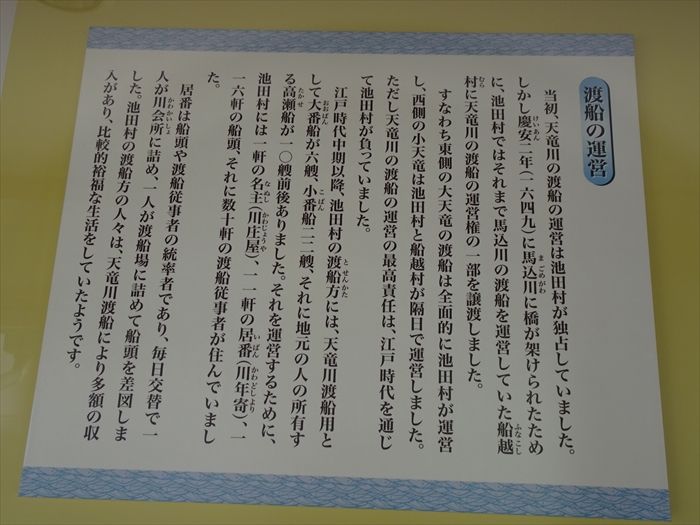 渡船の運営
当初、天竜川の渡船の運営は池田村が独占していました。
しかし慶安二年(一六四九)に馬込川に橋が架けられたため
に、池田村ではそれまで馬込川の渡船を運営していた船越
村に天竜川の渡船の運営権の一部を譲渡しました。
すなわち東側の大天竜の渡船は全面的に池田村が運営
し、西側の小天竜は池田村と船越村が隔日で運営しました。
ただし天竜川の渡船の運営の最高責任は、江戸時代を通じ
て池田村が負っていました。
江戸時代中期以降、池田村の渡船方には、天竜川渡船用と
して大番船が六艘、小番船二三艘、それに地元の人の所有す
る高瀬船が一〇艘前後ありました。それを運営するために、
池田村には一軒の名主(川庄屋)、一一軒の居番(川年寄)、一
一六軒の船頭、それに数十軒の渡船従事者が住んでいまし
た。
居番は船頭や渡船従事者の統率者であり、毎日交替で一
人が川会所に詰め、一人が渡船場に詰めて船頭を差図しま
した。池田村の渡船方の人々は、天竜川渡船により多額の収
入があり、比較的裕福な生活をしていたようです。